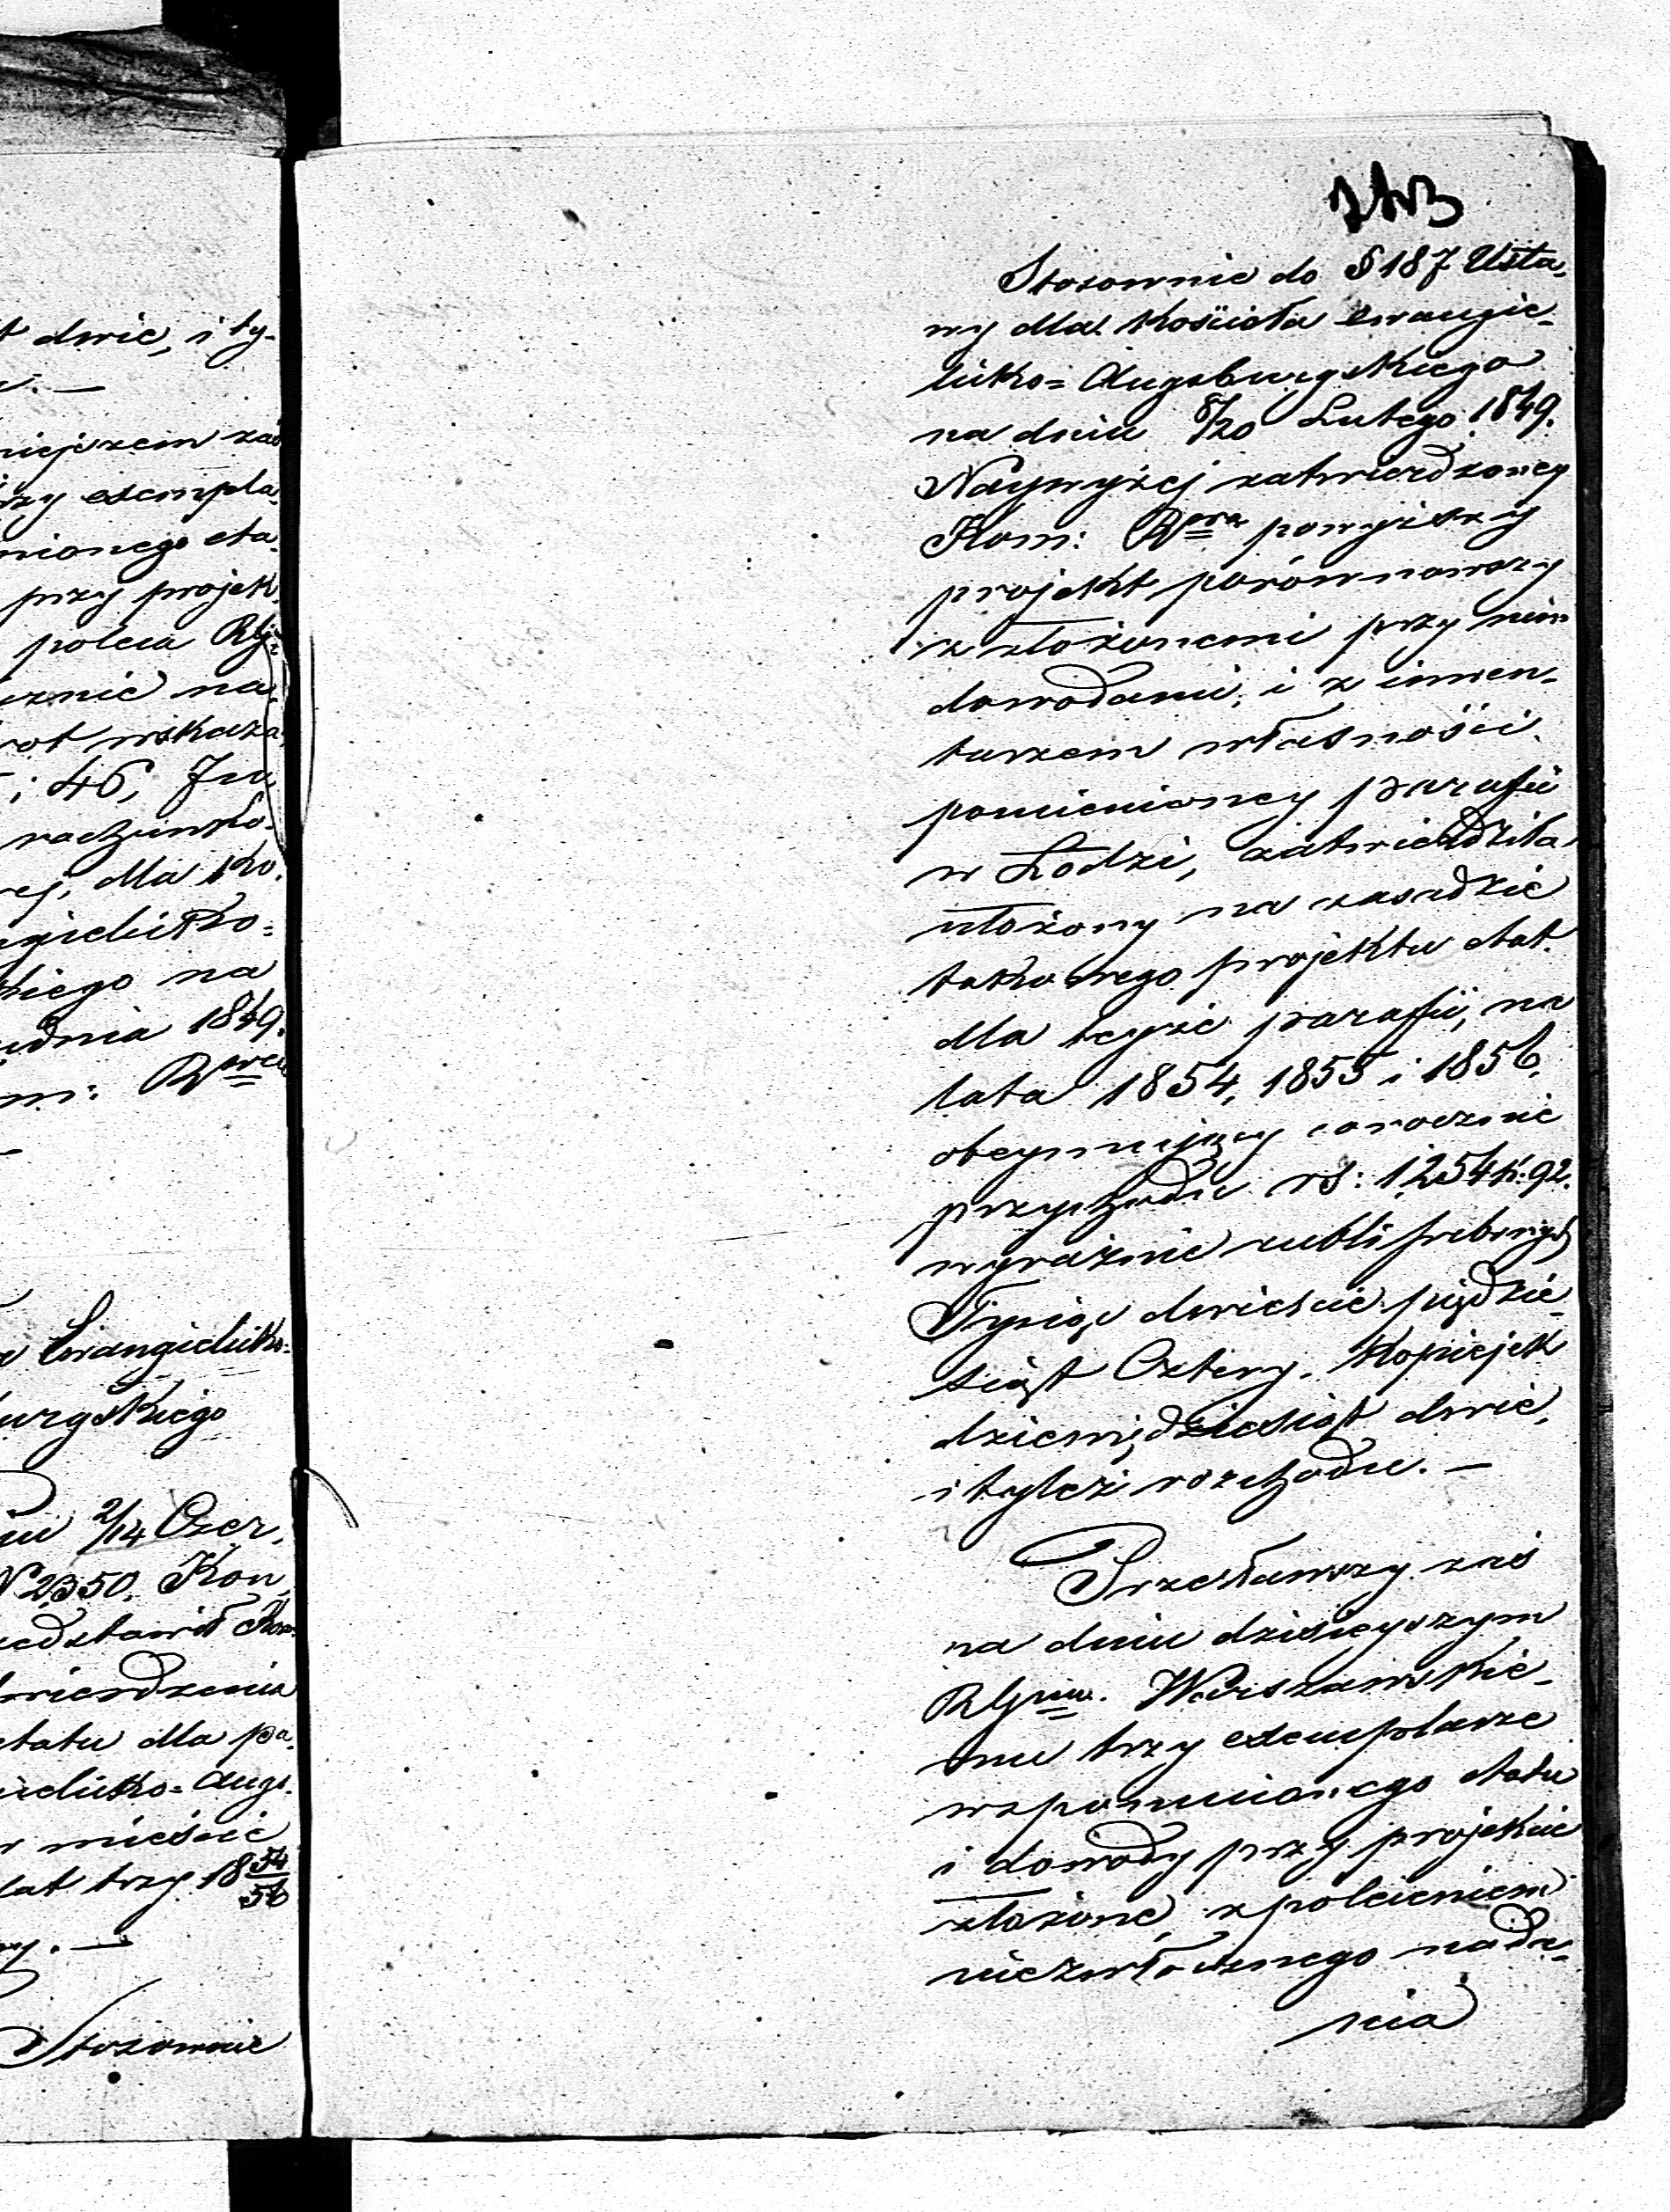 t dwie, i ty-
niejszem zaś
rzy exempla-
nionego eta-
przy projek-
poleca Rz
cznie na-
rot wskaza-
i 46, Jn
rachunko-
ej, dla Ko-
ngielicko=
kiego na
udnia 1849.
m: Rz
Ewangielicko=
urgskiego
niu 2/14 Czer,
N 2,350. Kon,
edstawił Kom
wierdzenia
etatu dla pa,
ielicko=Augs.
w mieście
lat trzy 18 54/56
ny. —
Stosownie
Stosownie do § 187 Usta,
wy dla Kościoła Ewangie-
licko=Augsburgskiego
na dniu 8/20 Lutego 1849.
Naywyżej zatwierdzoney
Kom: Rząwa powyższy
projekt porównawszy
z złożonemi przy nim
dowodami, i z inwen-
tarzem własności
pomienioney parafii
w Łodzi, zatwierdziła
ułożony na zasadzie
takowego projektu etat
dla teyże parafii, na
lata 1854, 1855 i 1856,
obeymujący corocznie
przychodu rs: 1,254 k: 92.
wyraźnie rubli srebrnych
Tysiąc dwieście pięćdzie-
siąt Cztery, Kopiejek
dziewięćdziesiąt dwie,
i tyleż rozchodu. —
Przesławszy zaś
na dniu dzisieyszym
Rz Warszawskie-
mu trzy exemplarze
wspomnionego etatu
i dowody przy projekcie
złożone, z poleceniem
niezwłocznego nada-
nia